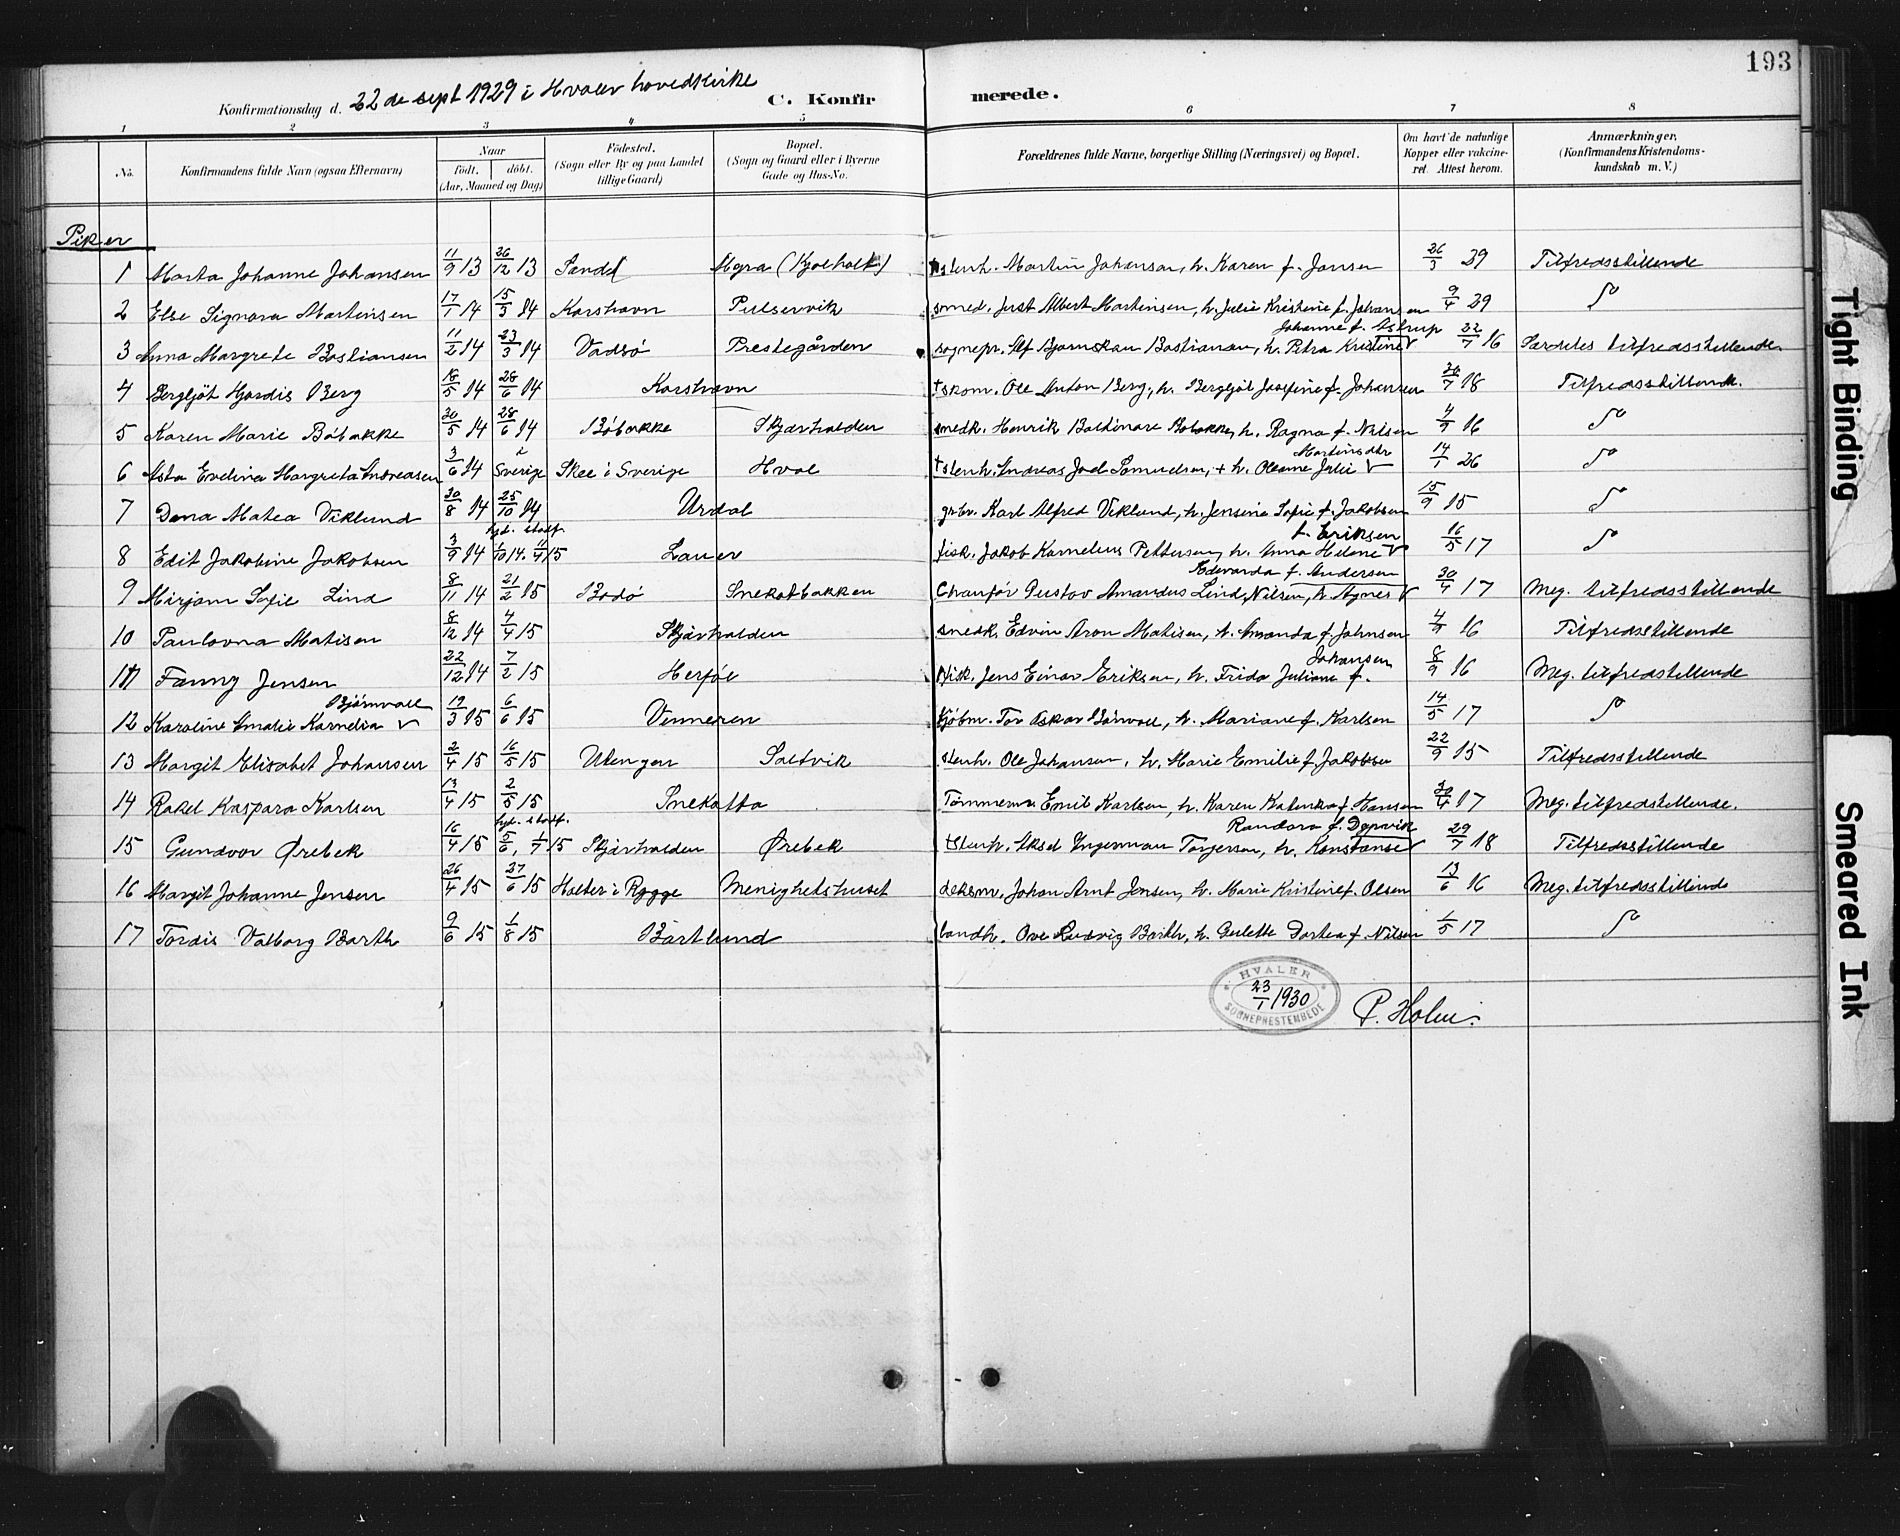 193
Konfirmationsdag d. 22 de sept 1929 i Hvaler hovedkirke C. Konfirmerede.
1 2 3 4 5 6 7 8
No. Konfirmandens fulde Navn (ogsaa Efternavn) Naar födt. döbt. (Aar, Maaned og Dag) Födested. (Sogn eller By og paa Landet tillige Gaard) Bopæl. (Sogn og Gaard eller i Byerne Gade og Hus-No. Forældrenes fulde Navne, borgerlige Stilling (Næringsvei) og Bopæl. Om havt de naturlige Kopper eller vaccineret. Attest herom. Anmærkninger. (Konfirmandens Kristendomskundskab m. V.)
Piker
1 Marta Johanne Johansen 11/9 13 26/12 13 Sand Møra (Kjølholt) stenh. Martin Johansen, h. Karen f. Jansen 26/3 29 Tilfredsstillende
2 Else Signora Martinsen 17/1 14 15/3 14 Korshavn Pulservik smed. Just Albert Martinsen, h. Julie Kristine f. Johansen 9/4 29 "
3 Anna Margrete Bastiansen 11/2 14 23/3 14 Vadsö Prestegården sognepr. Alf Bjarnskau Bastiansen, h. Petra Kristine Johanne f. Astrup 22/7 16 Særdeles tilfredsstillende
4 Bergljöt Hjördis Berg 18/5 14 28/6 14 Korshavn † skom. Ole Anton Berg, h. Bergljöt Josefine f. Johansen 26/7 18 Tilfredsstillende.
5 Karen Marie Böbakke 20/5 14 28/6 14 Böbakke Skjærhalden snedk. Henrik Baldinare Böbakke, h. Ragna f. Nilsen 4/9 16 "
6 Asta Evelina Margreta Andreasen 3/6 14 i Sverige Skee i Sverige Hval † stenh. Andreas Joel Samuelsen, + h. Oleane Julie Martinsdtr 14/1 26 "
7 Dena Matea Viklund 30/8 14 25/10 14 Urdal grbr. Karl Alfred Viklund, h. Jensine Sofie f. Jakobsen 15/9 15 "
8 Edit Jakobine Jakobsen 3/9 14 hjd. stadf. 1/10 14. 11/4 15 Lauer fisk. Jakob Kornelius Pettersen, h. Anna Helene f. Eriksen 16/5 17 "
9 Mirjam Sofie Lind 8/11 14 21/2 15 Bodö Snekotbakken Chauför Gustav Amandus Lind, Nilsen, h. Agnes Edvarda f. Andersen 30/4 17 Meg. tilfredsstillende
10 Paulovna Matisen 8/12 14 4/4 15 Skjærhalden snedk. Edvin Aron Matisen, h. Amanda f. Johnsen 4/9 16 Tilfredsstillende
11 Fanny Jensen 22/12 14 7/2 15 Herföl fisk. Jens Einar Eriksen, h. Frida Juliane f. Johansen 8/9 16 Meg. tilfredsstillende
12 Karoline Amalie Kornelia Björnvall 19/3 15 6/6 15 Vinneren kjöbm. Tor Oskar Björnvall, h. Mariane f. Karlsen 14/5 17 "
13 Margit Elisabet Johansen 2/4 15 16/5 15 Utengen Saltvik stenh. Ole Johansen, h. Marie Emilie f. Jakobsen 22/9 15 Tilfredsstillende
14 Rakel Kaspara Karlsen 13/4 15 2/5 15 Snekotta Tömmerm. Emil Karlsen, h. Karen Katinka f. Hansen 30/4 17 Meg. tilfredsstillende.
15 Gundvor Ørebek 16/4 15 hjd. stadf. 5/6, 1/7 15 Skjærhalden Ørebek † stenh. Aksel Ingeman Torgersen, h. Konstanse Randora f. Dypvik 29/7 18 Tilfredsstillende
16 Margit Johanne Jensen 26/4 15 27/6 15 Halter i Rygge Menighetshuset deksm. Johan Arnt Jensen, h. Marie Kristine f. Olsen 13/6 16 Meg. tilfredsstillende
17 Tordis Valborg Barth 9/6 15 1/8 15 Bastlund landh. Ove Ludvig Barth, h. Gulette Dortea f. Nilsen 1/5 17 "
HVALER
23/1 1930
SOGNEPRESTEMBEDE
P. Holm.
Tight Binding
Smeared Ink